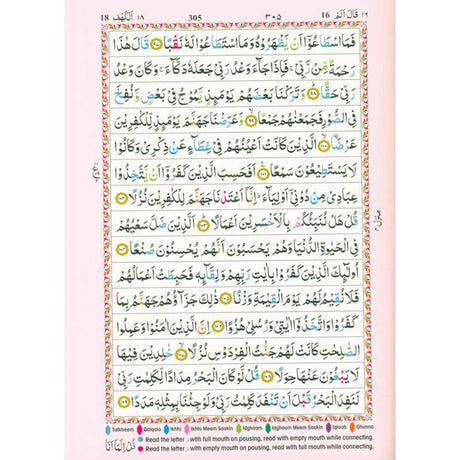 ١٨ اَلْكَهْف 18
305 ٣٠٥
16 قَالَ اَلَمْ ١٦
فَمَا اسْطَاعُوْۤا اَنْ يَّظْهَرُوْهُ وَمَا اسْتَطَاعُوْا لَهٗ نَقْبًا ﴿۹۷﴾ قَالَ هٰذَا
رَحْمَةٌ مِّنْ رَّبِّیْ ۚ فَاِذَا جَآءَ وَعْدُ رَبِّیْ جَعَلَهٗ دَكَّآءَ ۚ وَكَانَ وَعْدُ
رَبِّیْ حَقًّا ﴿۹۸﴾ وَتَرَكْنَا بَعْضَهُمْ يَوْمَئِذٍ يَّمُوْجُ فِیْ بَعْضٍ وَّنُفِخَ
فِی الصُّوْرِ فَجَمَعْنٰهُمْ جَمْعًا ﴿۹۹﴾ وَّعَرَضْنَا جَهَنَّمَ يَوْمَئِذٍ لِّلْكٰفِرِيْنَ
عَرْضَا ﴿۱۰۰﴾ الَّذِيْنَ كَانَتْ اَعْيُنُهُمْ فِیْ غِطَآءٍ عَنْ ذِكْرِیْ وَكَانُوْا
لَا يَسْتَطِيْعُوْنَ سَمْعًا ﴿۱۰۱﴾ اَفَحَسِبَ الَّذِيْنَ كَفَرُوْۤا اَنْ يَّتَّخِذُوْا
عِبَادِیْ مِنْ دُوْنِیْۤ اَوْلِيَآءَ ؕ اِنَّاۤ اَعْتَدْنَا جَهَنَّمَ لِلْكٰفِرِيْنَ نُزُلًا ﴿۱۰۲﴾
قُلْ هَلْ نُنَبِّئُكُمْ بِالْاَخْسَرِيْنَ اَعْمَالًا ﴿۱۰۳﴾ اَلَّذِيْنَ ضَلَّ سَعْيُهُمْ
فِی الْحَيٰوةِ الدُّنْيَا وَهُمْ يَحْسَبُوْنَ اَنَّهُمْ يُحْسِنُوْنَ صُنْعًا ﴿۱۰۴﴾
اُولٰٓئِكَ الَّذِيْنَ كَفَرُوْا بِاٰيٰتِ رَبِّهِمْ وَلِقَآئِهٖ فَحَبِطَتْ اَعْمَالُهُمْ
فَلَا نُقِيْمُ لَهُمْ يَوْمَ الْقِيٰمَةِ وَزْنًا ﴿۱۰۵﴾ ذٰلِكَ جَزَآؤُهُمْ جَهَنَّمُ بِمَا
كَفَرُوْا وَاتَّخَذُوْۤا اٰيٰتِیْ وَرُسُلِیْ هُزُوًا ﴿۱۰۶﴾ اِنَّ الَّذِيْنَ اٰمَنُوْا وَعَمِلُوا
الصّٰلِحٰتِ كَانَتْ لَهُمْ جَنّٰتُ الْفِرْدَوْسِ نُزُلًا ﴿۱۰۷﴾ خٰلِدِيْنَ فِيْهَا
لَا يَبْغُوْنَ عَنْهَا حِوَلًا ﴿۱۰۸﴾ قُلْ لَّوْ كَانَ الْبَحْرُ مِدَادًا لِّكَلِمٰتِ رَبِّیْ
لَنَفِدَ الْبَحْرُ قَبْلَ اَنْ تَنْفَدَ كَلِمٰتُ رَبِّیْ وَلَوْ جِئْنَا بِمِثْلِهٖ مَدَدًا ﴿۱۰۹﴾
Tafkheem Qalqala Ikhfa Ikhfa Meem Saakin Idghaam Idghaam Meem Saakin Iqlaab Ghunna
Read the letter , with full mouth on pausing, read with empty mouth while connecting.
Read the letter , with empty mouth on pausing, read with full mouth while connecting.